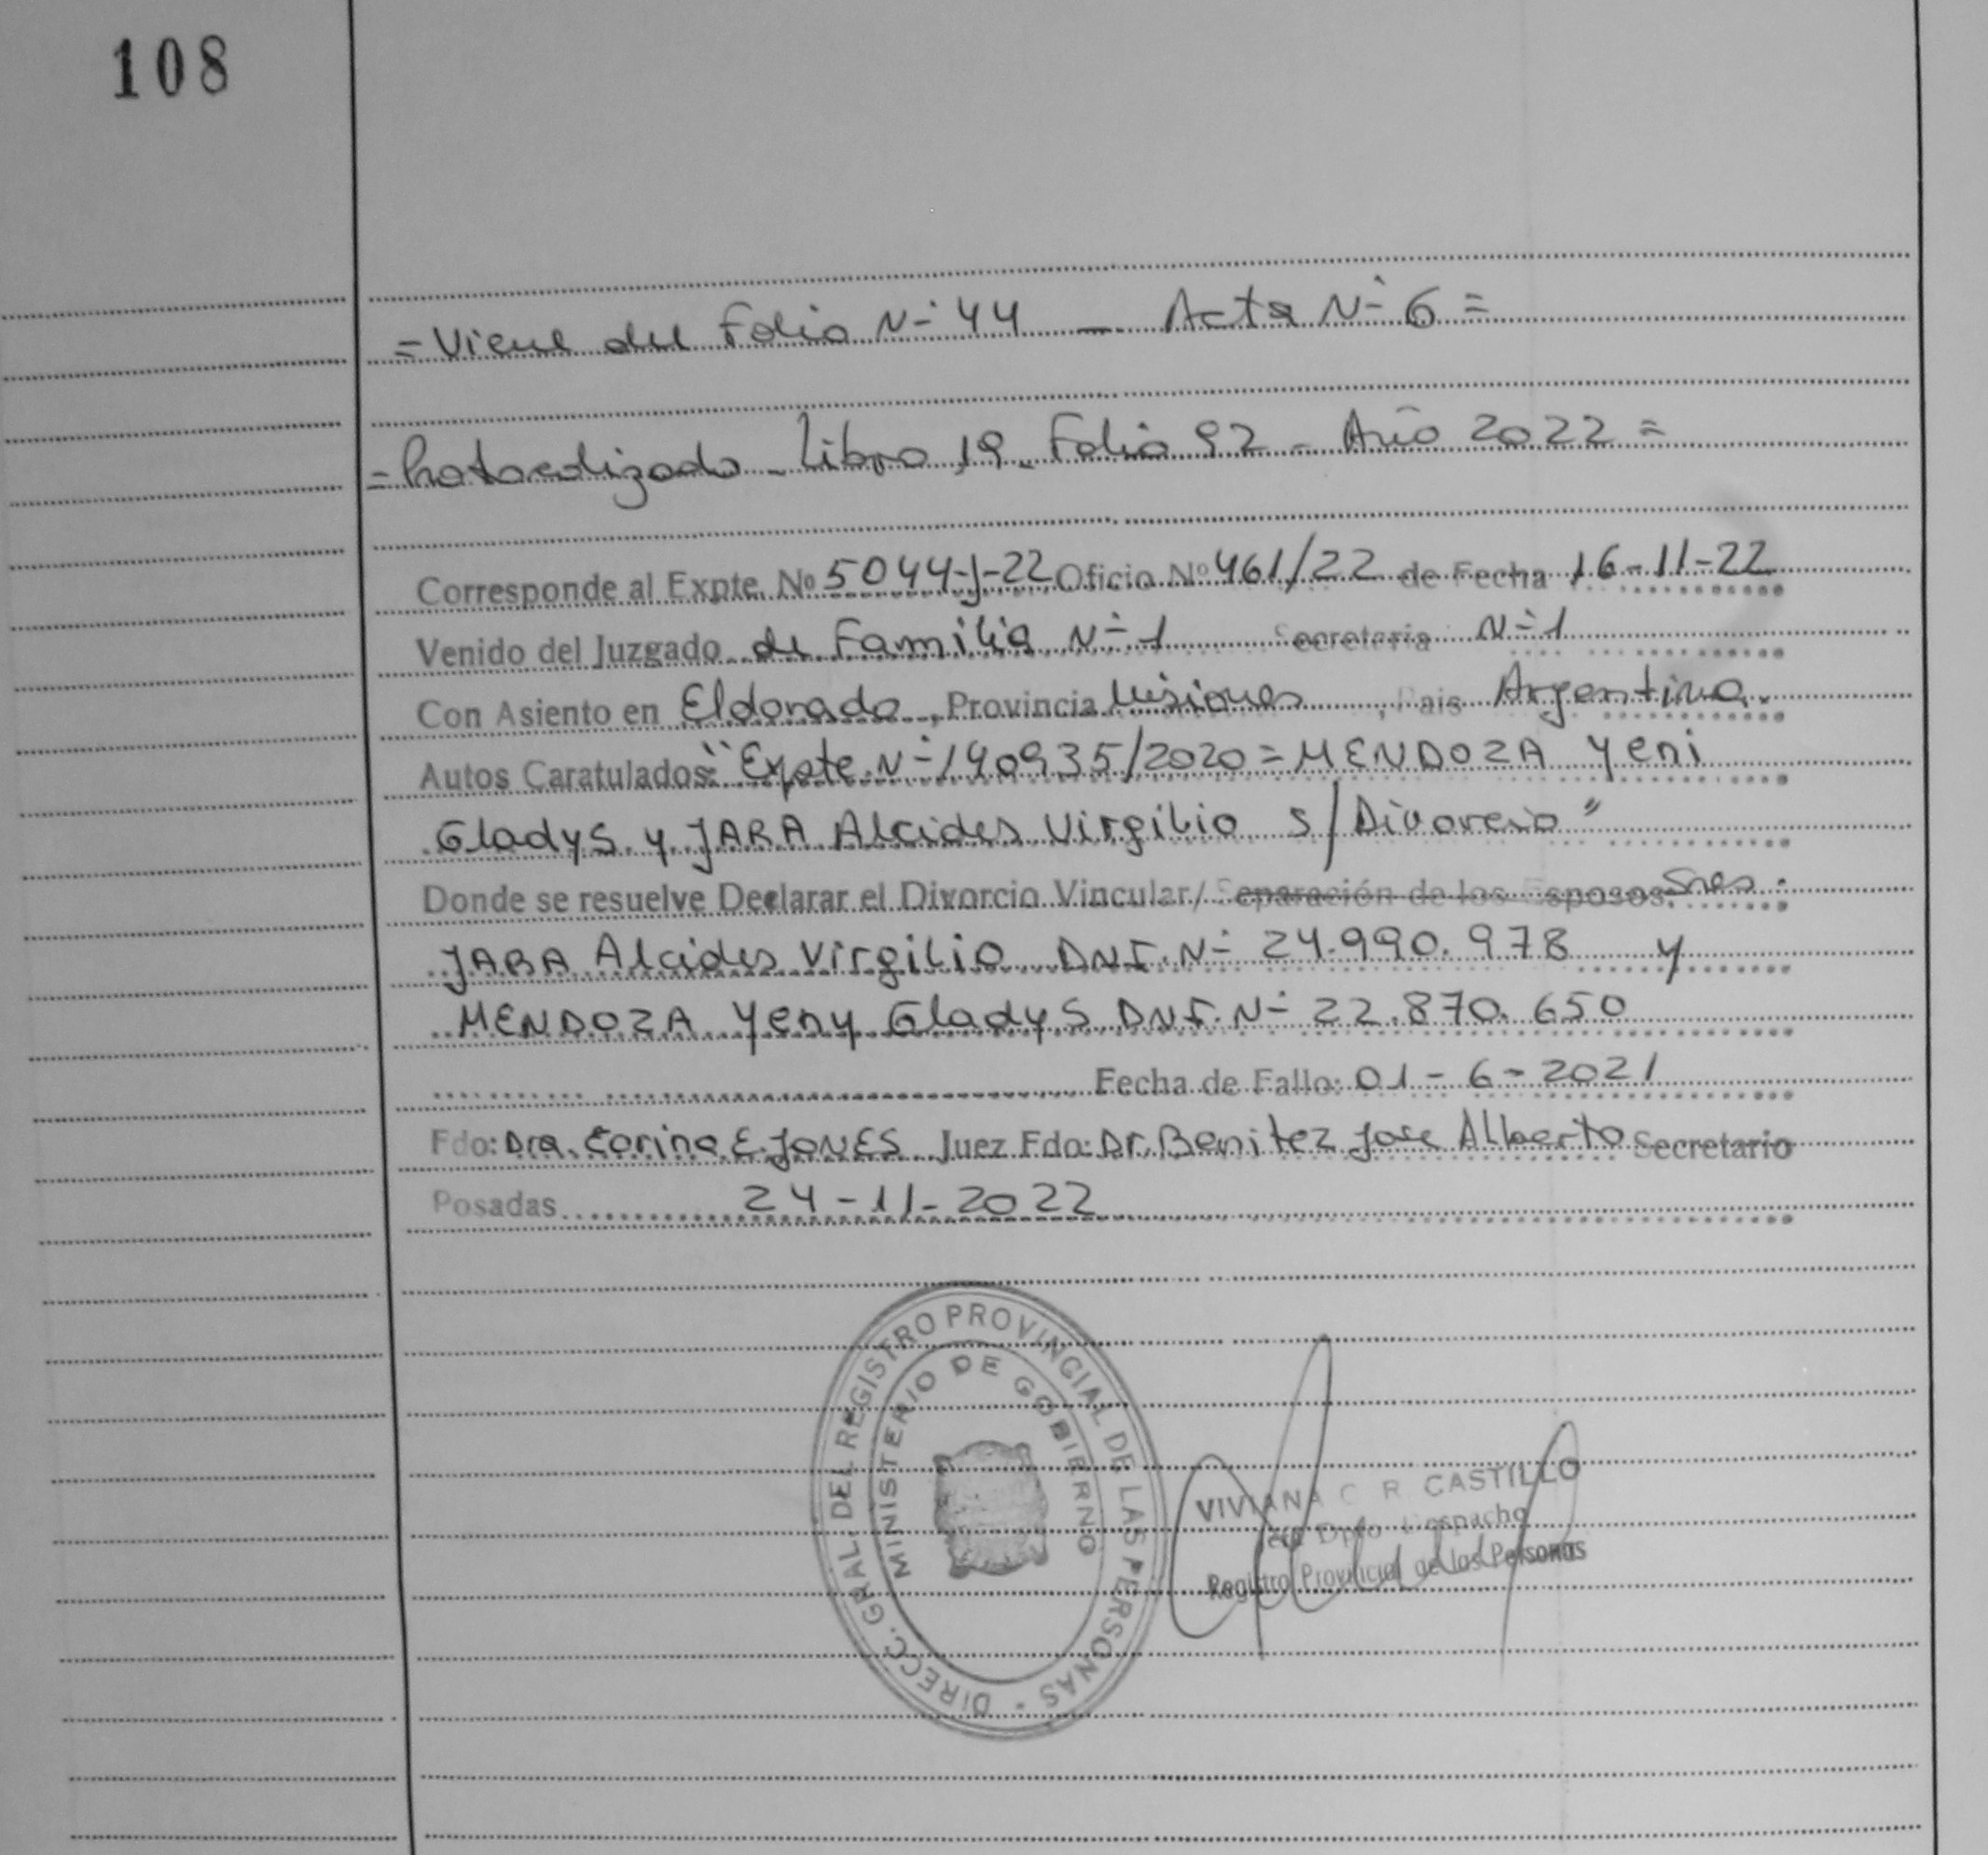 108
= Viene del Folio N° 44 — Acta N° 6 =
= Protocolizado - Libro 19. Folio 92 - Año 2022 =
Corresponde al Expte. Nº 5044-J-22 Oficio Nº 461/22 de Fecha 16-11-22
Venido del Juzgado de Familia N° 1 Secretaria N° 1
Con Asiento en Eldorado, Provincia Misiones, Pais Argentina.
Autos Caratulados: "Expte. N° 140935/2020 = MENDOZA Yeni
Gladys y JARA Alcides Virgilio s/ Divorcio"
Donde se resuelve Declarar el Divorcio Vincular/ Separación de los Esposos: Sres.
JARA Alcides Virgilio DNI. N° 24.990.978 y
MENDOZA Yeny Gladys DNI. N° 22.870.650
Fecha de Fallo: 01-6-2021
Fdo: Dra. Corina E. JONES Juez Fdo: Dr. Benitez Jose Alberto Secretario
Posadas 24-11-2022
DIRECC. GRAL. DEL REGISTRO PROVINCIAL DE LAS PERSONAS -
MINISTERIO DE GOBIERNO
VIVIANA C R CASTILLO
Jefa Dpto Despacho
Registro Provincial de las Personas